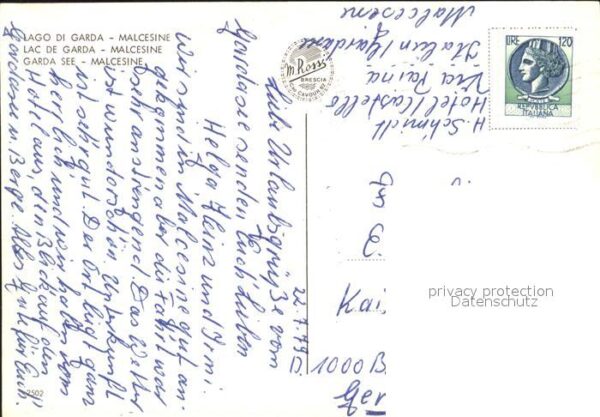 LAGO DI GARDA - MALCESINE
LAC DE GARDA - MALCESINE
GARDA SEE - MALCESINE
m. Rossi
BRESCIA
LIRE 120
REPVBBLICA
ITALIANA
H. Schmidt
Hotel Castello
Via Paina
Italien/Gardasee
Malcesine
22.7.79
Liebe Urlaubsgrüße vom
Gardasee senden Euch Lieben
Helga, Heinz und Irmi.
Wir sind in Malcesine gut an-
gekommen aber die Fahrt war
sehr anstrengend. Das Wetter
ist wunderschön, Unterkunft
ist sehr gut. Der Ort liegt ganz
herrlich und wir haben vom
Hotel aus, den Blick auf den
Gardasee u. Berge. Alles Gute für Euch.
Kai
1000 B
Ger
privacy protection
Datenschutz
2502